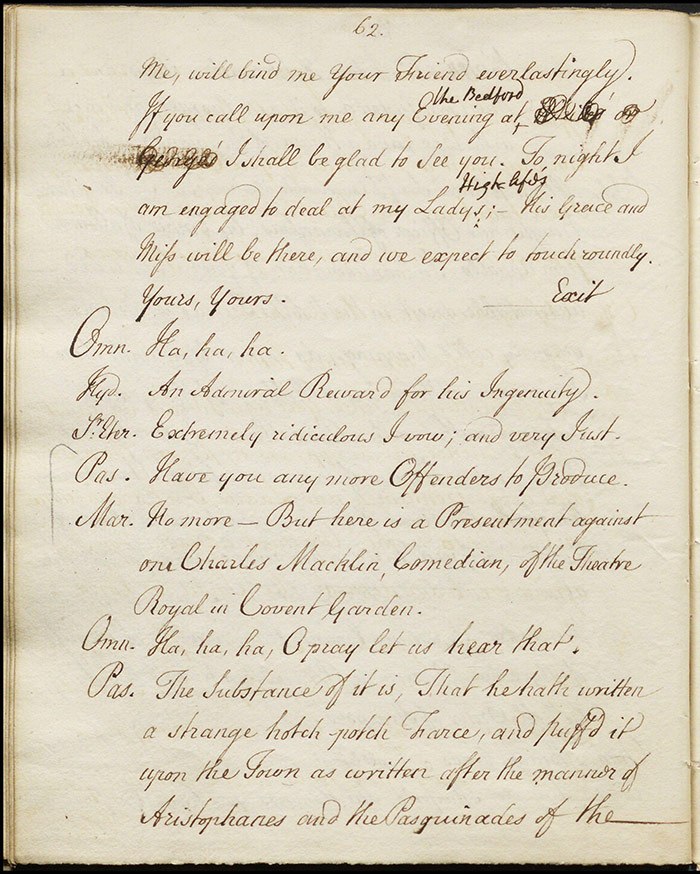 62.
Me, will bind me Your Friend everlastingly.
the Bedford
If you call upon me any Evening at or
I shall be glad to see you. To night I
High-lifes
am engaged to deal at my Ladys; – His Grace and
Miss will be there, and we expect to touch roundly.
Yours, Yours. Exit
Omn. Ha, ha, ha.
Hyd. An Admiral Reward for his Ingenuity.
Sr. Eter. Extremely ridiculous I vow; and very Just.
Pas. Have you any more Offenders to Produce.
Mar. No more – But here is a Presentment against
one Charles Macklin, Comedian, of the Theatre
Royal in Covent Garden.
Omn. Ha, ha, ha, O pray let us hear that.
Pas. The Substance of it is, That he hath written
a strange hotch-potch Farce, and puff'd it
upon the Town as written after the manner of
Aristophanes and the Pasquinades of the